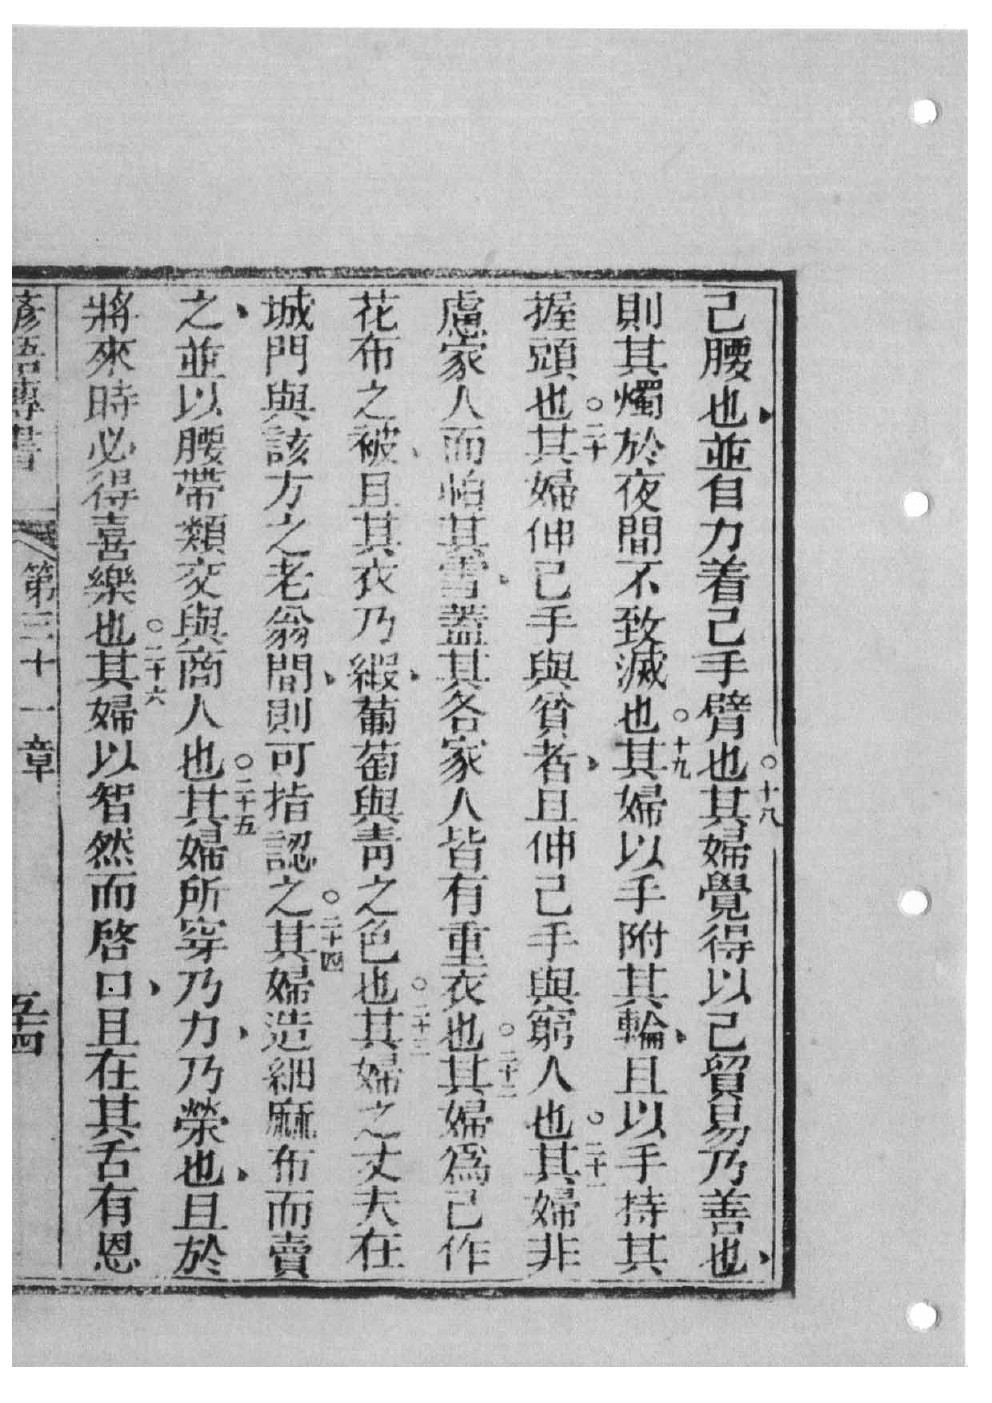 己腰也並自力着己手臂也○十八其婦覺得以己貿易乃善也
則其燭於夜間不致滅也○十九其婦以手附其輪且以手持其
握頭也○二十其婦伸己手與貧者且伸己手與窮人也○二十一其婦非
慮家人而怕其雪蓋其各家人皆有重衣也○二十二其婦爲己作
花布之被且其衣乃緞葡萄與青之色也○二十三其婦之丈夫在
城門與該方之老翁間則可指認之○二十四其婦造細麻布而賣
之並以腰帶類交與商人也○二十五其婦所穿乃力乃榮也且於
將來時必得喜樂也○二十六其婦以智然而啓口且在其舌有恩
諺語傳書 第三十一章 五十四